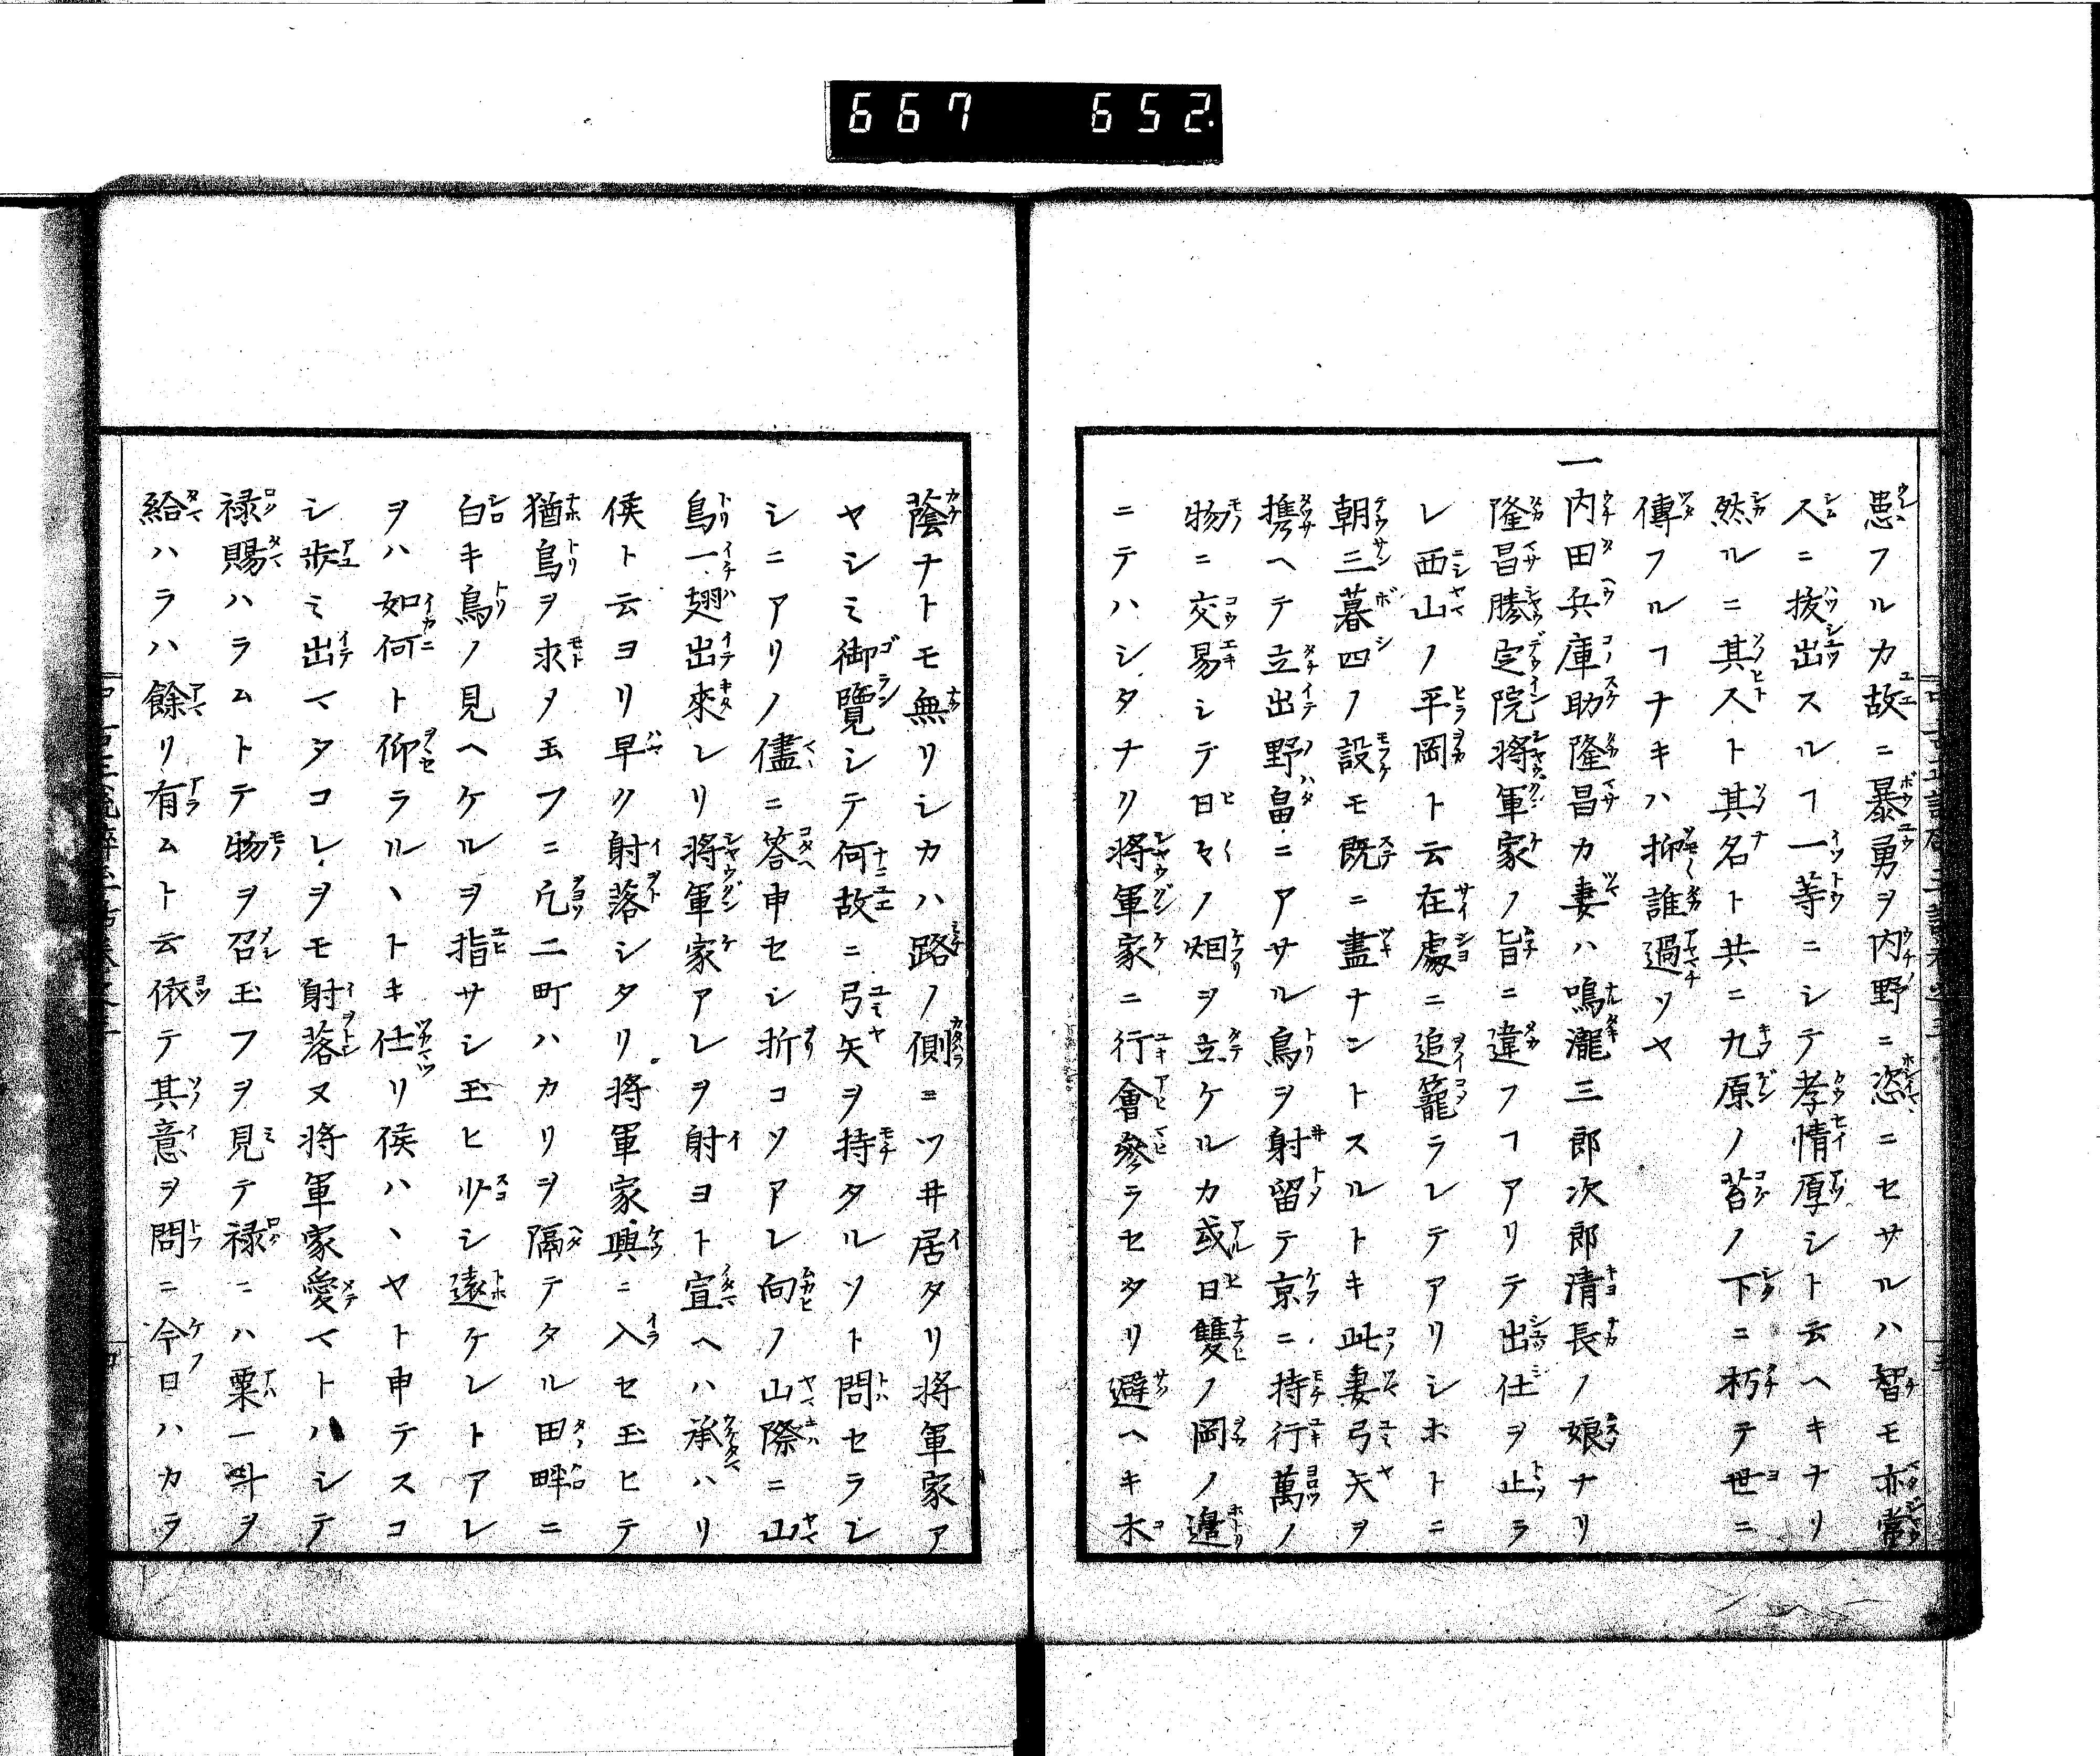 667 652.
患フルカ故ニ暴勇ヲ内野ニ恣ニセサルハ智モ亦常
人ニ抜出スルヿ一等ニシテ孝情厚シト云ヘキナリ
然ルニ其人ト其名ト共ニ九原ノ苔ノ下ニ朽テ世ニ
傳フルヿナキハ抑誰過ソヤ
一内田兵庫助隆昌カ妻ハ鳴瀧三郎次郎清長ノ娘ナリ
隆昌勝定院将軍家ノ旨ニ違フヿアリテ出仕ヲ止ラ
レ西山ノ平岡ト云在處ニ追籠ラレテアリシホトニ
朝三暮四ノ設モ既ニ盡ナントスルトキ此妻弓矢ヲ
携ヘテ立出野畠ニアサル鳥ヲ射留テ京ニ持行萬ノ
物ニ交易シテ日々ノ烟ヲ立ケルカ或日雙ノ岡ノ邉
ニテハシタナリ将軍家ニ行會參ラセタリ避ヘキ木
蔭ナトモ無リシカハ路ノ側ニツ井居タリ将軍家ア
ヤシミ御覽シテ何故ニ弓矢ヲ持タルソト問セラレ
シニアリノ儘ニ答申セシ折コソアレ向ノ山際ニ山
鳥一翅出來レリ将軍家アレヲ射ヨト宣ヘハ承ハリ
侯ト云ヨリ早ク射落シタリ将軍家興ニ入セ玉ヒテ
猶鳥ヲ求メ玉フニ凢二町ハカリヲ隔テタル田畔ニ
白キ鳥ノ見ヘケルヲ指サシ玉ヒ少シ遠ケレトアレ
ヲハ如何ト仰ラルヽトキ仕リ侯ハヽヤト申テスコ
シ歩ミ出マタコレヲモ射落ヌ将軍家愛マトハシテ
禄賜ハラムトテ物ヲ召玉フヲ見テ禄ニハ粟一斗ヲ
給ハラハ餘リ有ムト云依テ其意ヲ問ニ今日ハカラ